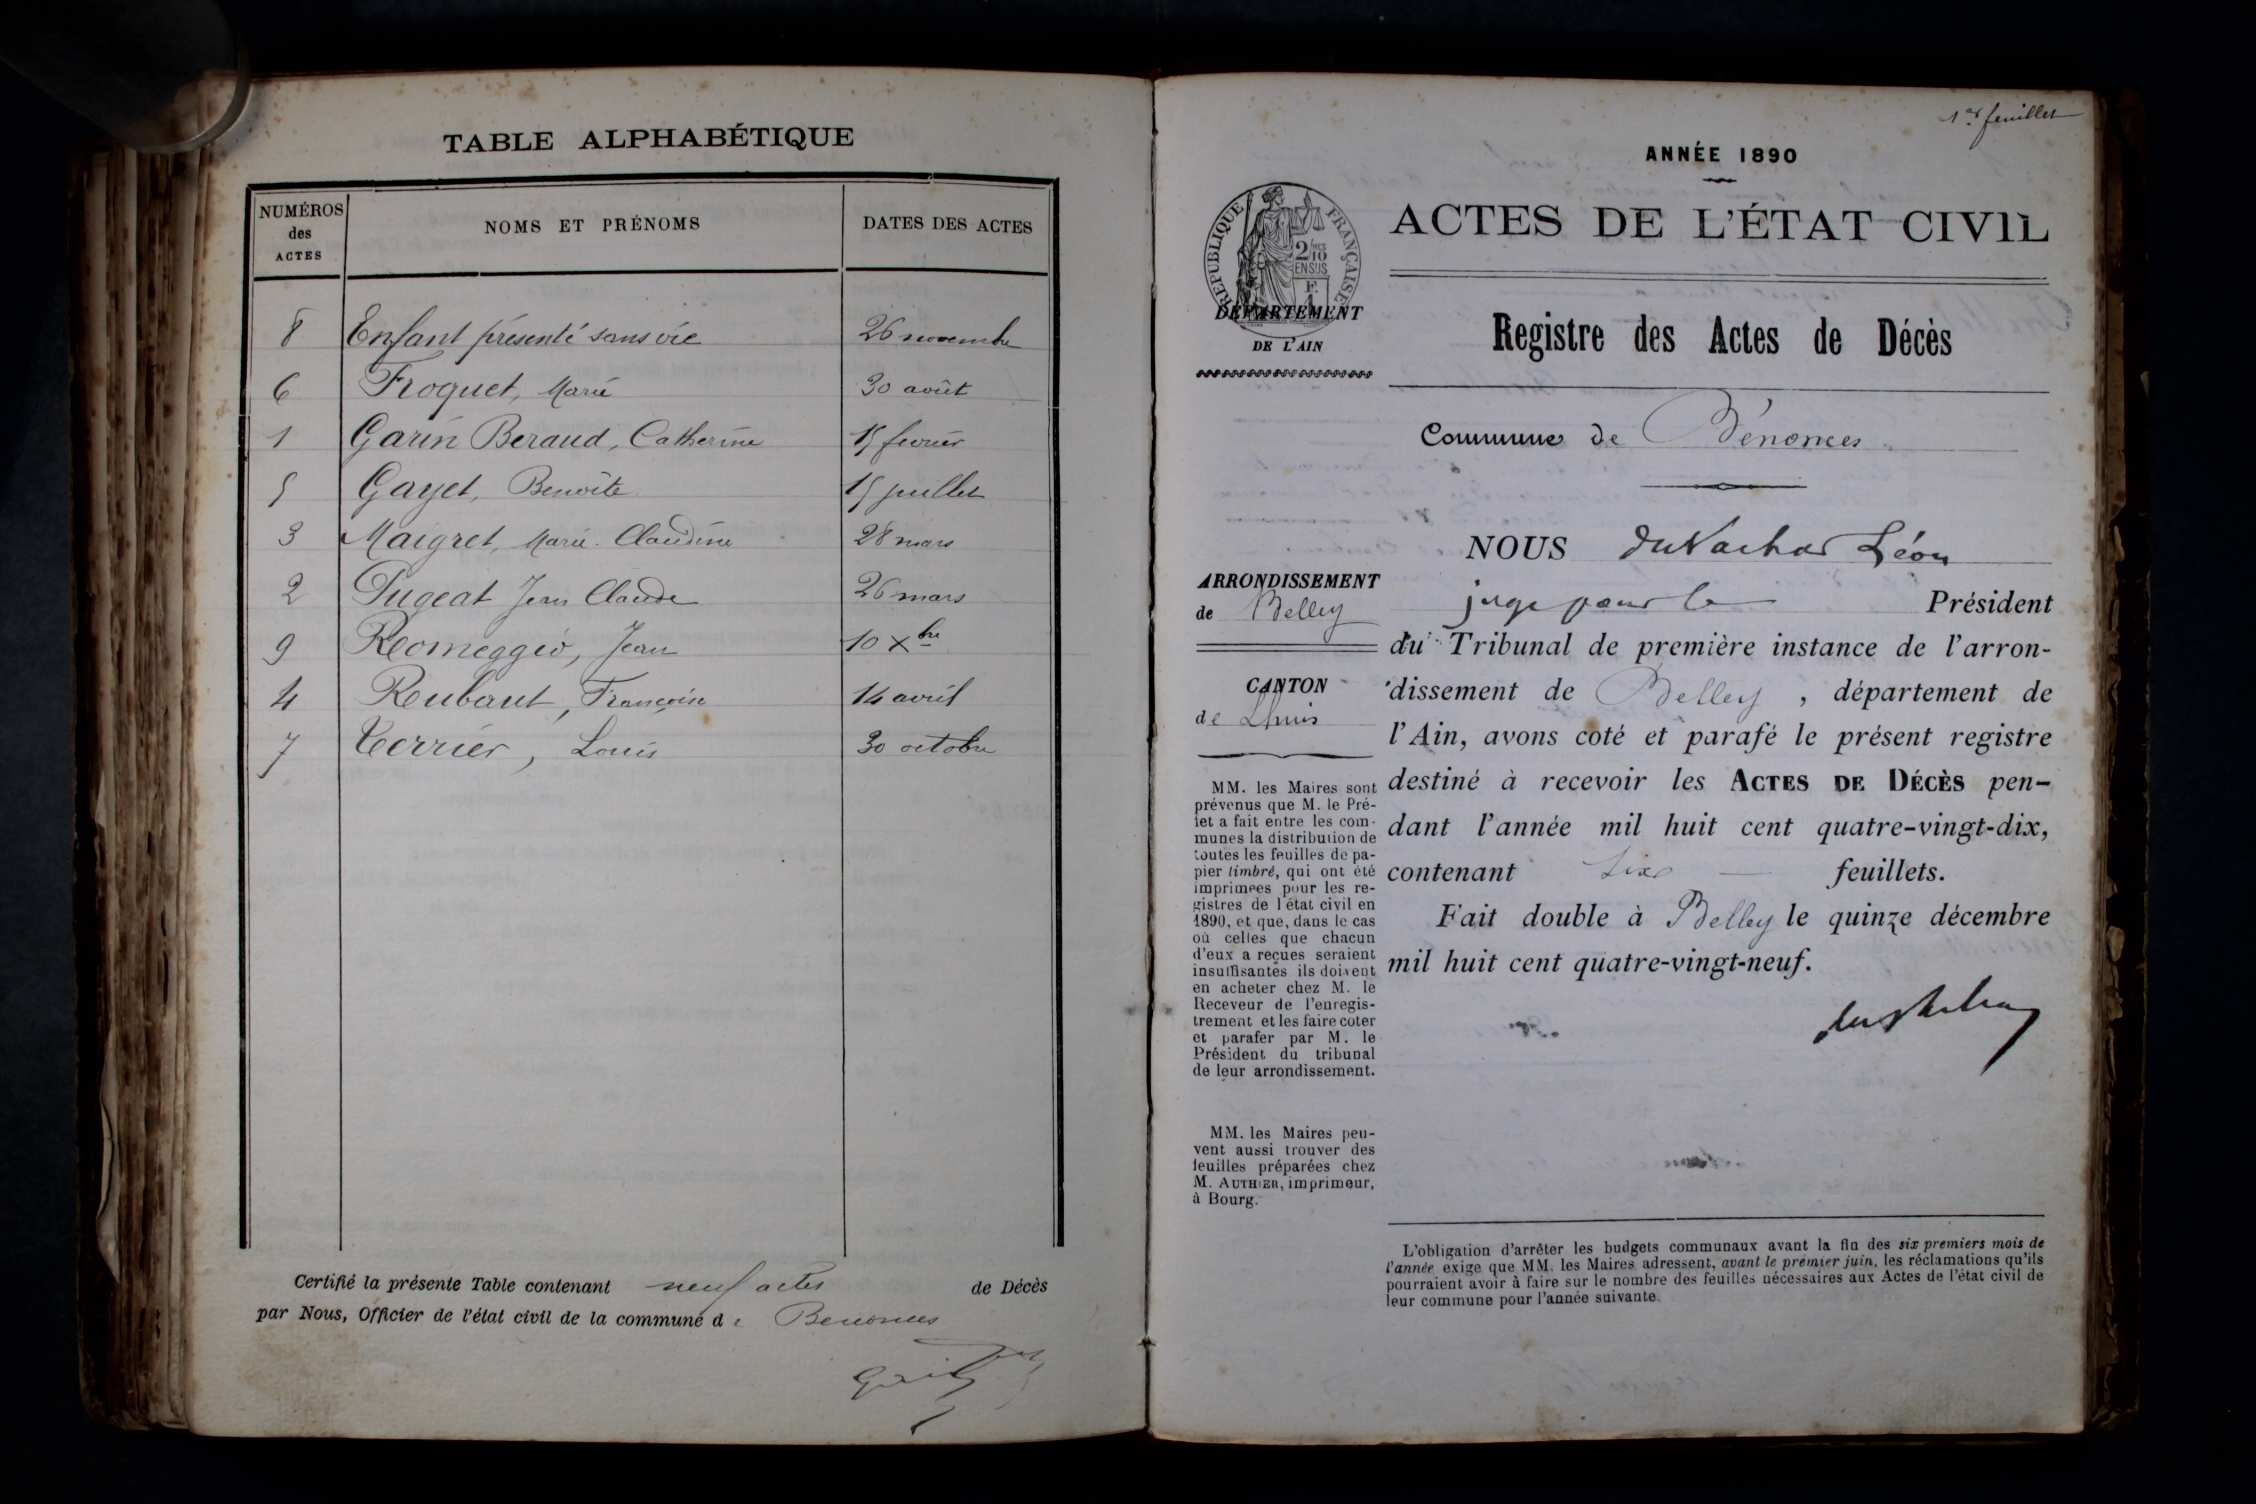 TABLE ALPHABÉTIQUE
NUMÉROS des ACTES NOMS ET PRÉNOMS DATES DES ACTES
8 Enfant présenté sans vie 26 novembre
6 Froquet, Marie 30 août
1 Garin Beraud, Catherine 15 fevrier
5 Gayet, Benoîte 15 juillet
3 Maigret, Marie Claudine 28 mars
2 Pugeat Jean Claude 26 mars
9 Romeggio, Jean 10 Xbre
4 Rubaut, Françoise 14 avril
7 Terrier, Louis 30 octobre
Certifié la présente Table contenant neuf actes de Décès
par Nous, Officier de l'état civil de la commune de Benonces
1er feuillet
ANNÉE 1890
RÉPUBLIQUE FRANÇAISE
2/10 EN SUS
ACTES DE L'ÉTAT CIVIL
DÉPARTEMENT
DE L'AIN
Registre des Actes de Décès
Commune de Bénonces
NOUS Léon
ARRONDISSEMENT
de Belley
juge pour le Président
du Tribunal de première instance de l'arron-
dissement de Belley, département de
l'Ain, avons coté et parafé le présent registre
destiné à recevoir les ACTES DE DÉCÈS pen-
dant l'année mil huit cent quatre-vingt-dix,
contenant six feuillets.
Fait double à Belley le quinze décembre
mil huit cent quatre-vingt-neuf.
CANTON
de Lhuis
MM. les Maires sont
prévenus que M. le Pré-
fet a fait entre les com-
munes la distribution de
toutes les feuilles de pa-
pier timbré, qui ont été
imprimées pour les re-
gistres de l'état civil en
1890, et que, dans le cas
où celles que chacun
d'eux a reçues seraient
insuffisantes ils doivent
en acheter chez M. le
Receveur de l'enregis-
trement et les faire coter
et parafer par M. le
Président du tribunal
de leur arrondissement.
MM. les Maires peu-
vent aussi trouver des
feuilles préparées chez
M. AUTHIER, imprimeur,
à Bourg.
L'obligation d'arrêter les budgets communaux avant la fin des six premiers mois de
l'année exige que MM. les Maires adressent, avant le premier juin, les réclamations qu'ils
pourraient avoir à faire sur le nombre des feuilles nécessaires aux Actes de l'état civil de
leur commune pour l'année suivante.